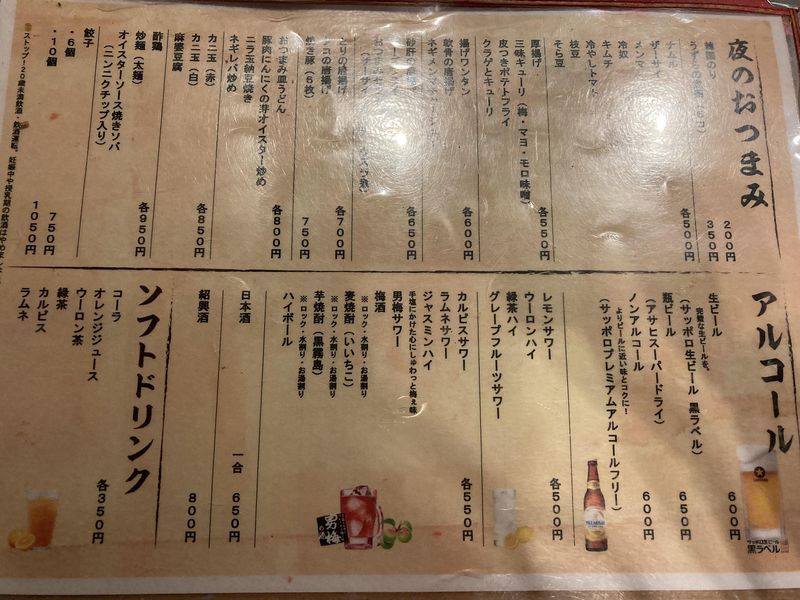 夜のおつまみ
韓国のり
200円
350円
ナムル
ザーサイ
メンマ
冷奴
キムチ
冷やしトマト
枝豆
そら豆
各500円
厚揚げ
三味キューリ（梅・マヨ・モロ味噌）
皮つきポテトフライ
クラゲとキューリ
各550円
揚げワンタン
軟骨の唐揚げ
各600円
砂肝の唐揚げ
各650円
とりの唐揚げ
タコの唐揚げ
各700円
焼き豚（6枚）
750円
おつまみ皿うどん
豚肉にんにくの芽オイスター炒め
ニラ玉納豆焼き
ネギレバ炒め
各800円
カニ玉（赤）
カニ玉（白）
麻婆豆腐
各850円
酢鶏
炒麺（太麺）
オイスターソース焼きソバ
（ニンニクチップ入り）
各950円
餃子
・6個
750円
・10個
1050円
ストップ！20歳未満飲酒・飲酒運転。妊娠中や授乳期の飲酒はやめ
アルコール
生ビール
600円
完璧な生ビールを。
（サッポロ生ビール 黒ラベル）
瓶ビール
650円
（アサヒスーパードライ）
ノンアルコール
600円
よりビールに近い味とコクに！
（サッポロプレミアムアルコールフリー）
サッポロ生ビール
黒ラベル
レモンサワー
ウーロンハイ
緑茶ハイ
グレープフルーツサワー
各500円
カルピスサワー
ラムネサワー
ジャスミンハイ
手塩にかけた心にしゅわっと梅ぇ味
男梅サワー
梅酒
※ロック・水割り・お湯割り
麦焼酎（いいちこ）
※ロック・水割り・お湯割り
芋焼酎（黒霧島）
※ロック・水割り・お湯割り
ハイボール
各550円
男梅
日本酒
一合 650円
紹興酒
800円
ソフトドリンク
コーラ
オレンジジュース
ウーロン茶
緑茶
カルピス
ラムネ
各350円